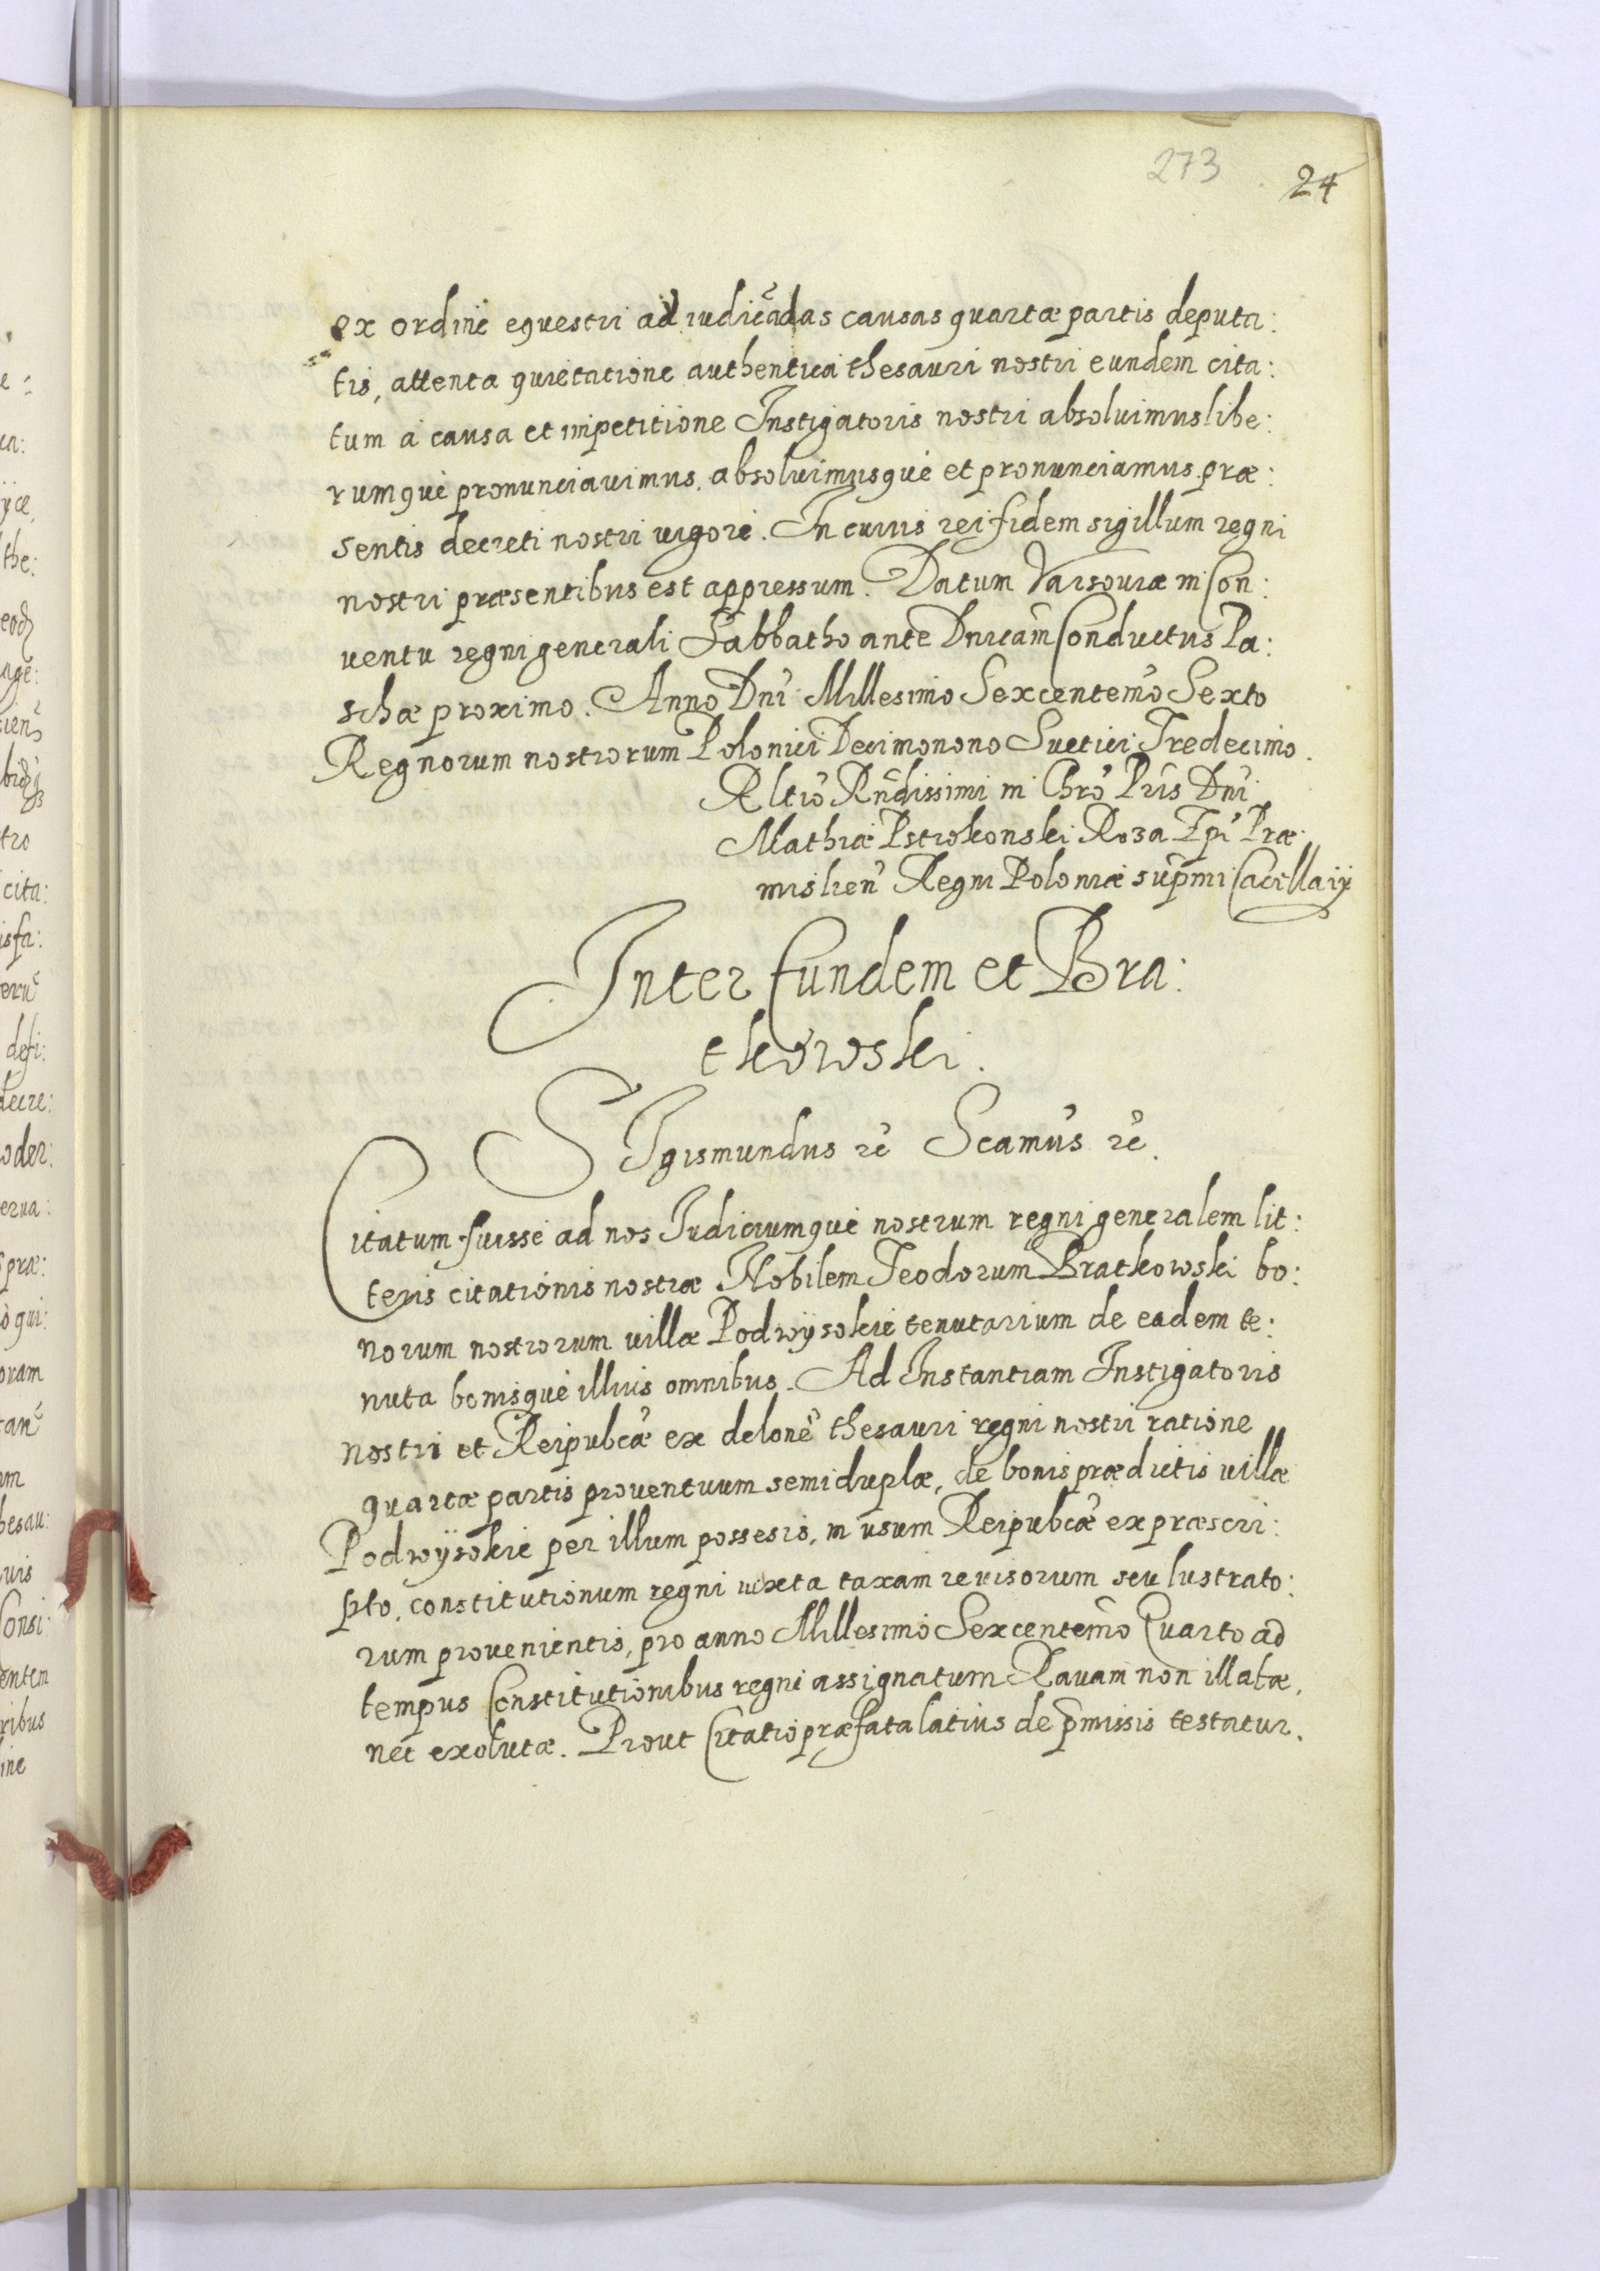 273 24
ex ordine equestri ad iudicãdas causas quartæ partis deputa:
tis, attenta quietatione authentica thesauri nostri eundem cita:
tum a causa et impetitione Instigatoris nostri absoluimus libe:
rumque pronunciauimus, absoluimusque et pronunciamus præ:
sentis decreti nostri uigore. In cuius rei fidem sigillum regni
nostri præsentibus est appressum. Datum Varsouiæ in Con:
uentu regni generali Sabbatho ante Dnicam Conductus Pa:
schæ proximo. Anno Dni Millesimo Sexcentemo Sexto
Regnorum nostrorum Polonici Decimonono Suetici Tredecimo.
Rltio Rndissimi in Chro Pris Dni
Mathiæ Pstrokonski Roza Epi Præ:
mislien Regni Poloniæ supmi Cacellaÿ
Inter Eundem et Bra:
tkowski.
SIgismundus rc Scamus rc.
Citatum fuisse ad nos Iudiciumque nostrum regni generalem lit:
teris citationis nostræ Nobilem Teodorum Bratkowski bo:
norum nostrorum uillæ Podwÿsokie tenutarium de eadem te:
nuta bonisque illius omnibus. Ad Instantiam Instigatoris
nostri et Reipubcæ ex delone thesauri regni nostri ratione
quartæ partis prouentuum semiduplæ, de bonis prædictis uillæ
Podwÿsokie per illum possesis, in usum Reipubcæ ex præscri:
pto, constitutionum regni iuxta taxam reuisorum seu lustrato:
rum prouenientis, pro anno Millesimo Sexcentemo Quarto ad
tempus Constitutionibus regni assignatum Rauam non illatæ,
nec exolutæ. Prout Citatio præfata latius de pmissis testatur.